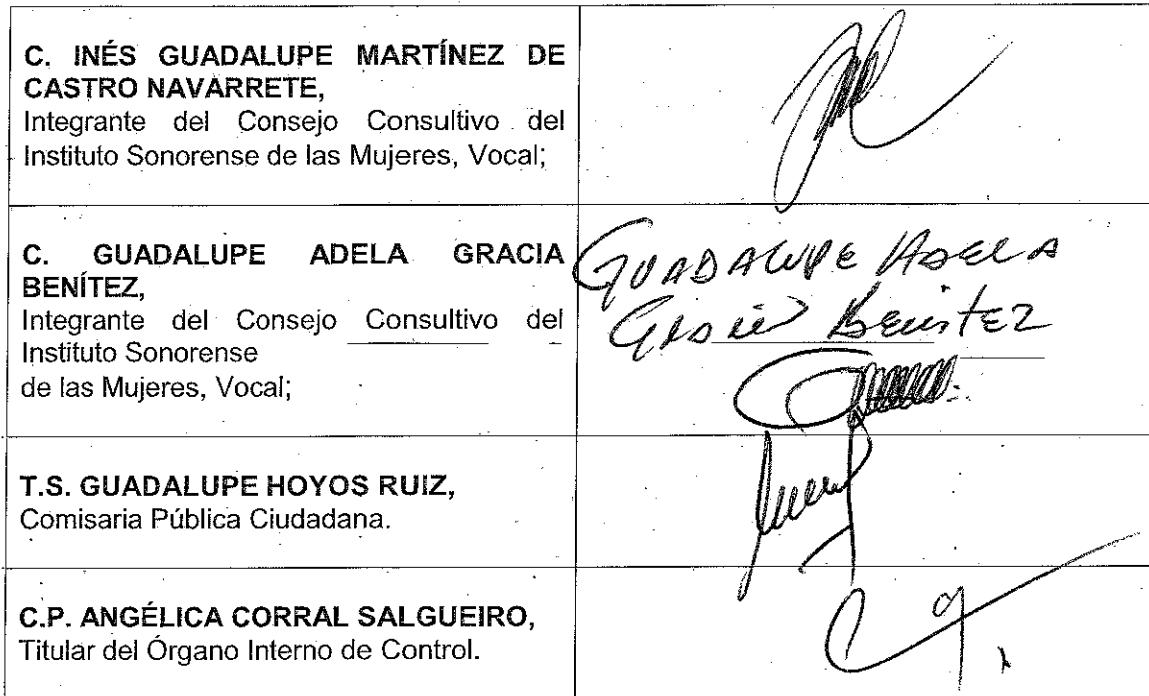 C. INÉS GUADALUPE MARTÍNEZ DE
CASTRO NAVARRETE,
Integrante del Consejo Consultivo del
Instituto Sonorense de las Mujeres, Vocal;
C. GUADALUPE ADELA GRACIA
BENÍTEZ,
Integrante del Consejo Consultivo del
Instituto Sonorense
de las Mujeres, Vocal;
GUADALUPE ADELA
Benitez
T.S. GUADALUPE HOYOS RUIZ,
Comisaria Pública Ciudadana.
C.P. ANGÉLICA CORRAL SALGUEIRO,
Titular del Órgano Interno de Control.